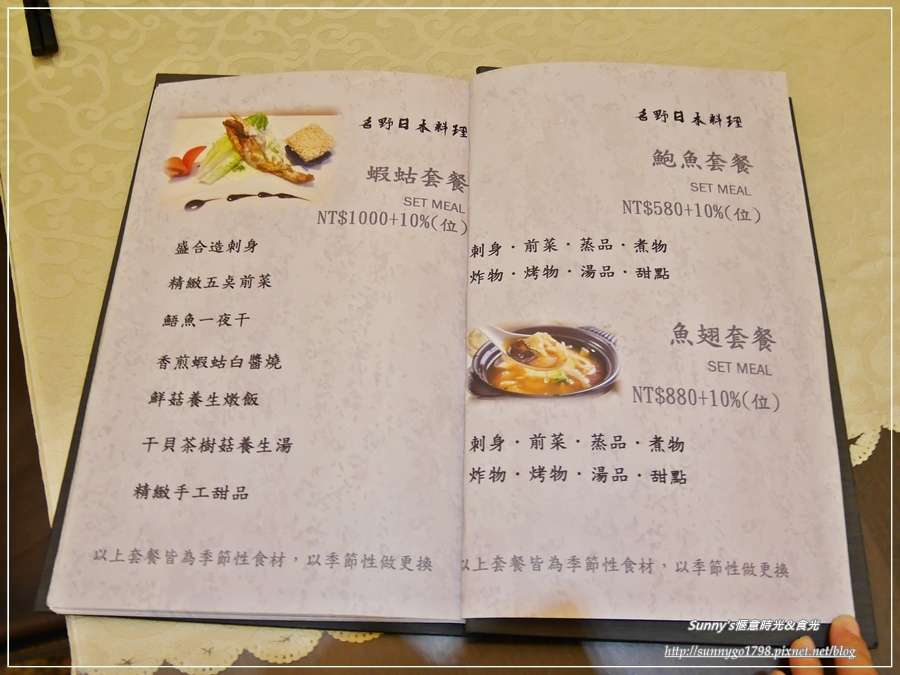 名野日本料理
蝦蛄套餐
SET MEAL
NT$1000+10%(位)
盛合造刺身
精緻五点前菜
鯃魚一夜干
香煎蝦蛄白醬燒
鮮菇養生燉飯
干貝茶樹菇養生湯
精緻手工甜品
以上套餐皆為季節性食材，以季節性做更換
名野日本料理
鮑魚套餐
SET MEAL
NT$580+10%(位)
刺身．前菜．蒸品．煮物
炸物．烤物．湯品．甜點
魚翅套餐
SET MEAL
NT$880+10%(位)
刺身．前菜．蒸品．煮物
炸物．烤物．湯品．甜點
以上套餐皆為季節性食材，以季節性做更換
Sunny's愜意時光&食光
http://sunnygo1798.pixnet.net/blog